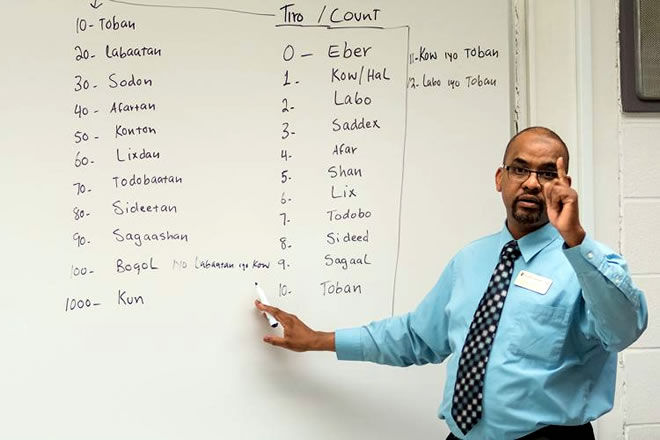 10- Toban
20- Labaatan
30- Sodon
40- Afartan
50- Konton
60- Lixdan
70- Todobaatan
80- Sideetan
90- Sagaashan
100- Bogol No Labaatan iyo Kow
1000- Kun
Tiro / Count
0- Eber
1. Kow/Hal
2- Labo
3- Saddex
4- Afar
5- Shan
6- Lix
7- Todobo
8- Sideed
9- Sagaal
10- Toban
11- Kow iyo Toban
12- Labo iyo Toban